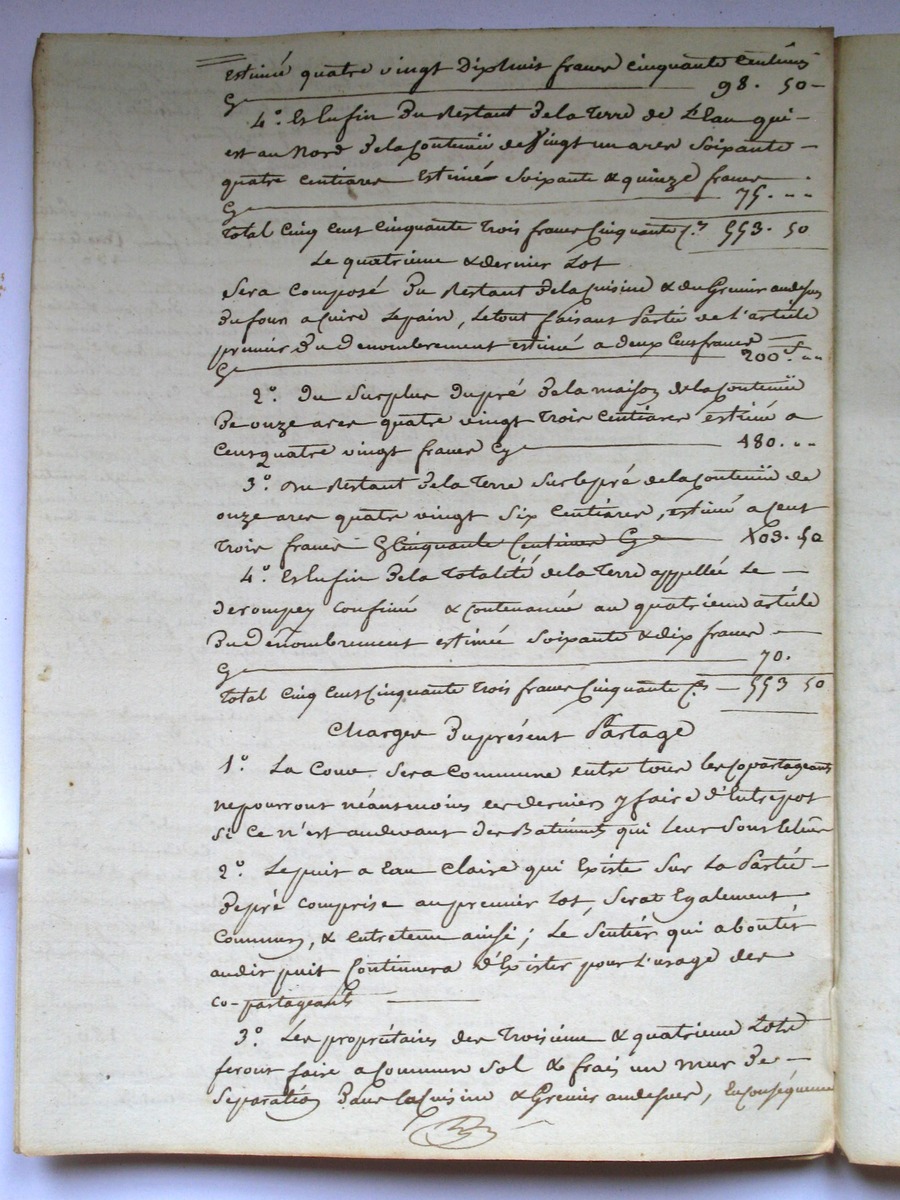 Estimé quatre vingt dixhuit francs cinquante centimes
Cy 98. 50
4.º Et Enfin Du Restant De la Terre de L'Eau qui
est au Nord De la Contenüe de Vingt un ares Soixante
quatre Centiares Estimée Soixante & quinze francs
Cy 75. "
Total Cinq Cent Cinquante Trois francs Cinquante C.es 553. 50
Le quatrieme & dernier Lot
Sera Composé Du Restant De la Cuisine & du Grenier au dessus
Du four a Cuire Le pain, Le tout faisant Partie de L'article
premier Du Denombrement estimé a deux Cent francs
Cy 200.f "
2.º Du Surplus Du pré De la maison De la Contenüe
De onze ares quatre vingt Trois Centiares estimé a
Cent quatre vingt francs Cy 180. "
3.º Du Restant De la Terre Sur Le pré de la Contenüe de
onze ares quatre vingt Six Centiares, estimé a Cent
Trois francs & Cinquante Centimes Cy 103. 50
4.º Et Enfin De la Totalité de la Terre appellée Le
Derompey Confiné & Contenancé au quatrieme article
Du Dénombrement estimée Soixante & dix francs
Cy 70.
Total Cinq Cent Cinquante Trois francs Cinquante C.es 553 50
Charges Du présent Partage
1.º La Cour Sera Commune entre tous les Copartageants
ne pourront néantmoins ces derniers y faire d'Entrepot
Si Ce n'est au devant Des Batiments qui Leur Sont
2.º Le puit a Eau Claire qui Existe Sur La Partie
De pré Comprise au premier Lot, Serat Egalement
Commun, & Entretenu ainsi; Le Sentier qui aboutit
audit puit Continuera d'Exister pour L'usage des
co-partageants
3.º Les propriétaires des Troisieme & quatrieme Lots
feront faire a Commun Sol & frais un mur De
Separation Dans la Cuisine & Grenier au dessus, En Conséquence